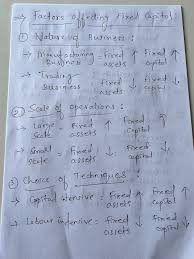 → Factors affecting Fixed Capital
① Nature of Business:
→ Manufacturing = Fixed ↑ Fixed ↑
Business assets capital
→ Trading = Fixed ↓ Fixed ↓
Business assets capital
② Scale of Operations:
→ Large = Fixed ↑ Fixed ↑
Scale assets capital
→ Small = Fixed ↓ Fixed ↓
Scale assets capital
③ Choice of Techniques:
→ Capital intensive = Fixed ↑ Fixed ↑
assets capital
→ Labour intensive = Fixed ↓ Fixed ↓
assets capital